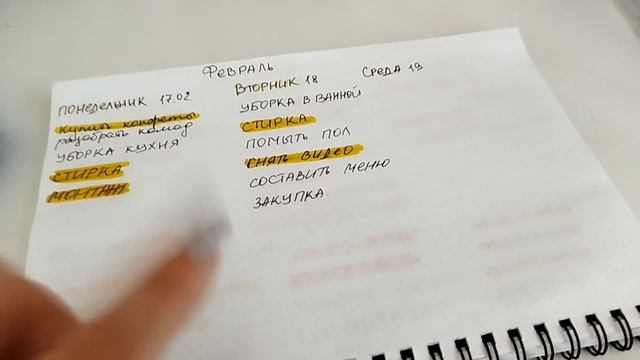 Февраль
Понедельник 17.02
Купить конфеты
разобрать комод
уборка кухня
стирка
монтаж
Вторник 18
уборка в ванной
стирка
помыть пол
снять видео
составить меню
закупка
Среда 19